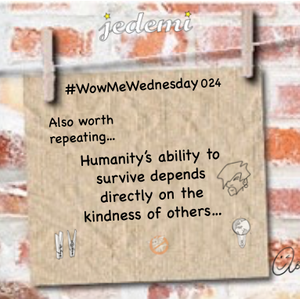 jedemi
#WowMeWednesday 024
Also worth
repeating...
Humanity's ability to
survive depends
directly on the
kindness of others...